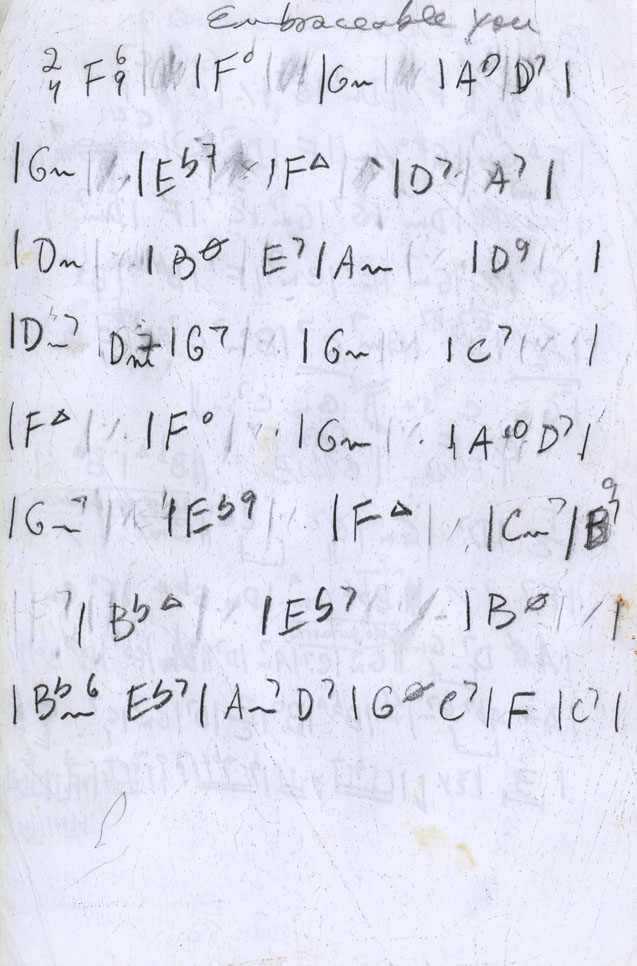 Embraceable you
2/4 F 6/9 | F° | Gm | Aø D7 |
| Gm | Eb7 | F△ | D7 A7 |
| Dm | Bø E7 | Am | D9 |
| Dm7 | G7 | Gm | C7 |
| F△ | F° | Gm | Aø D7 |
| Gm7 | Eb9 | F△ | Cm7 |
| Bb△ | Eb7 | Bø |
| Bbm6 Eb7 | Am7 D7 | Gø C7 | F | C7 |